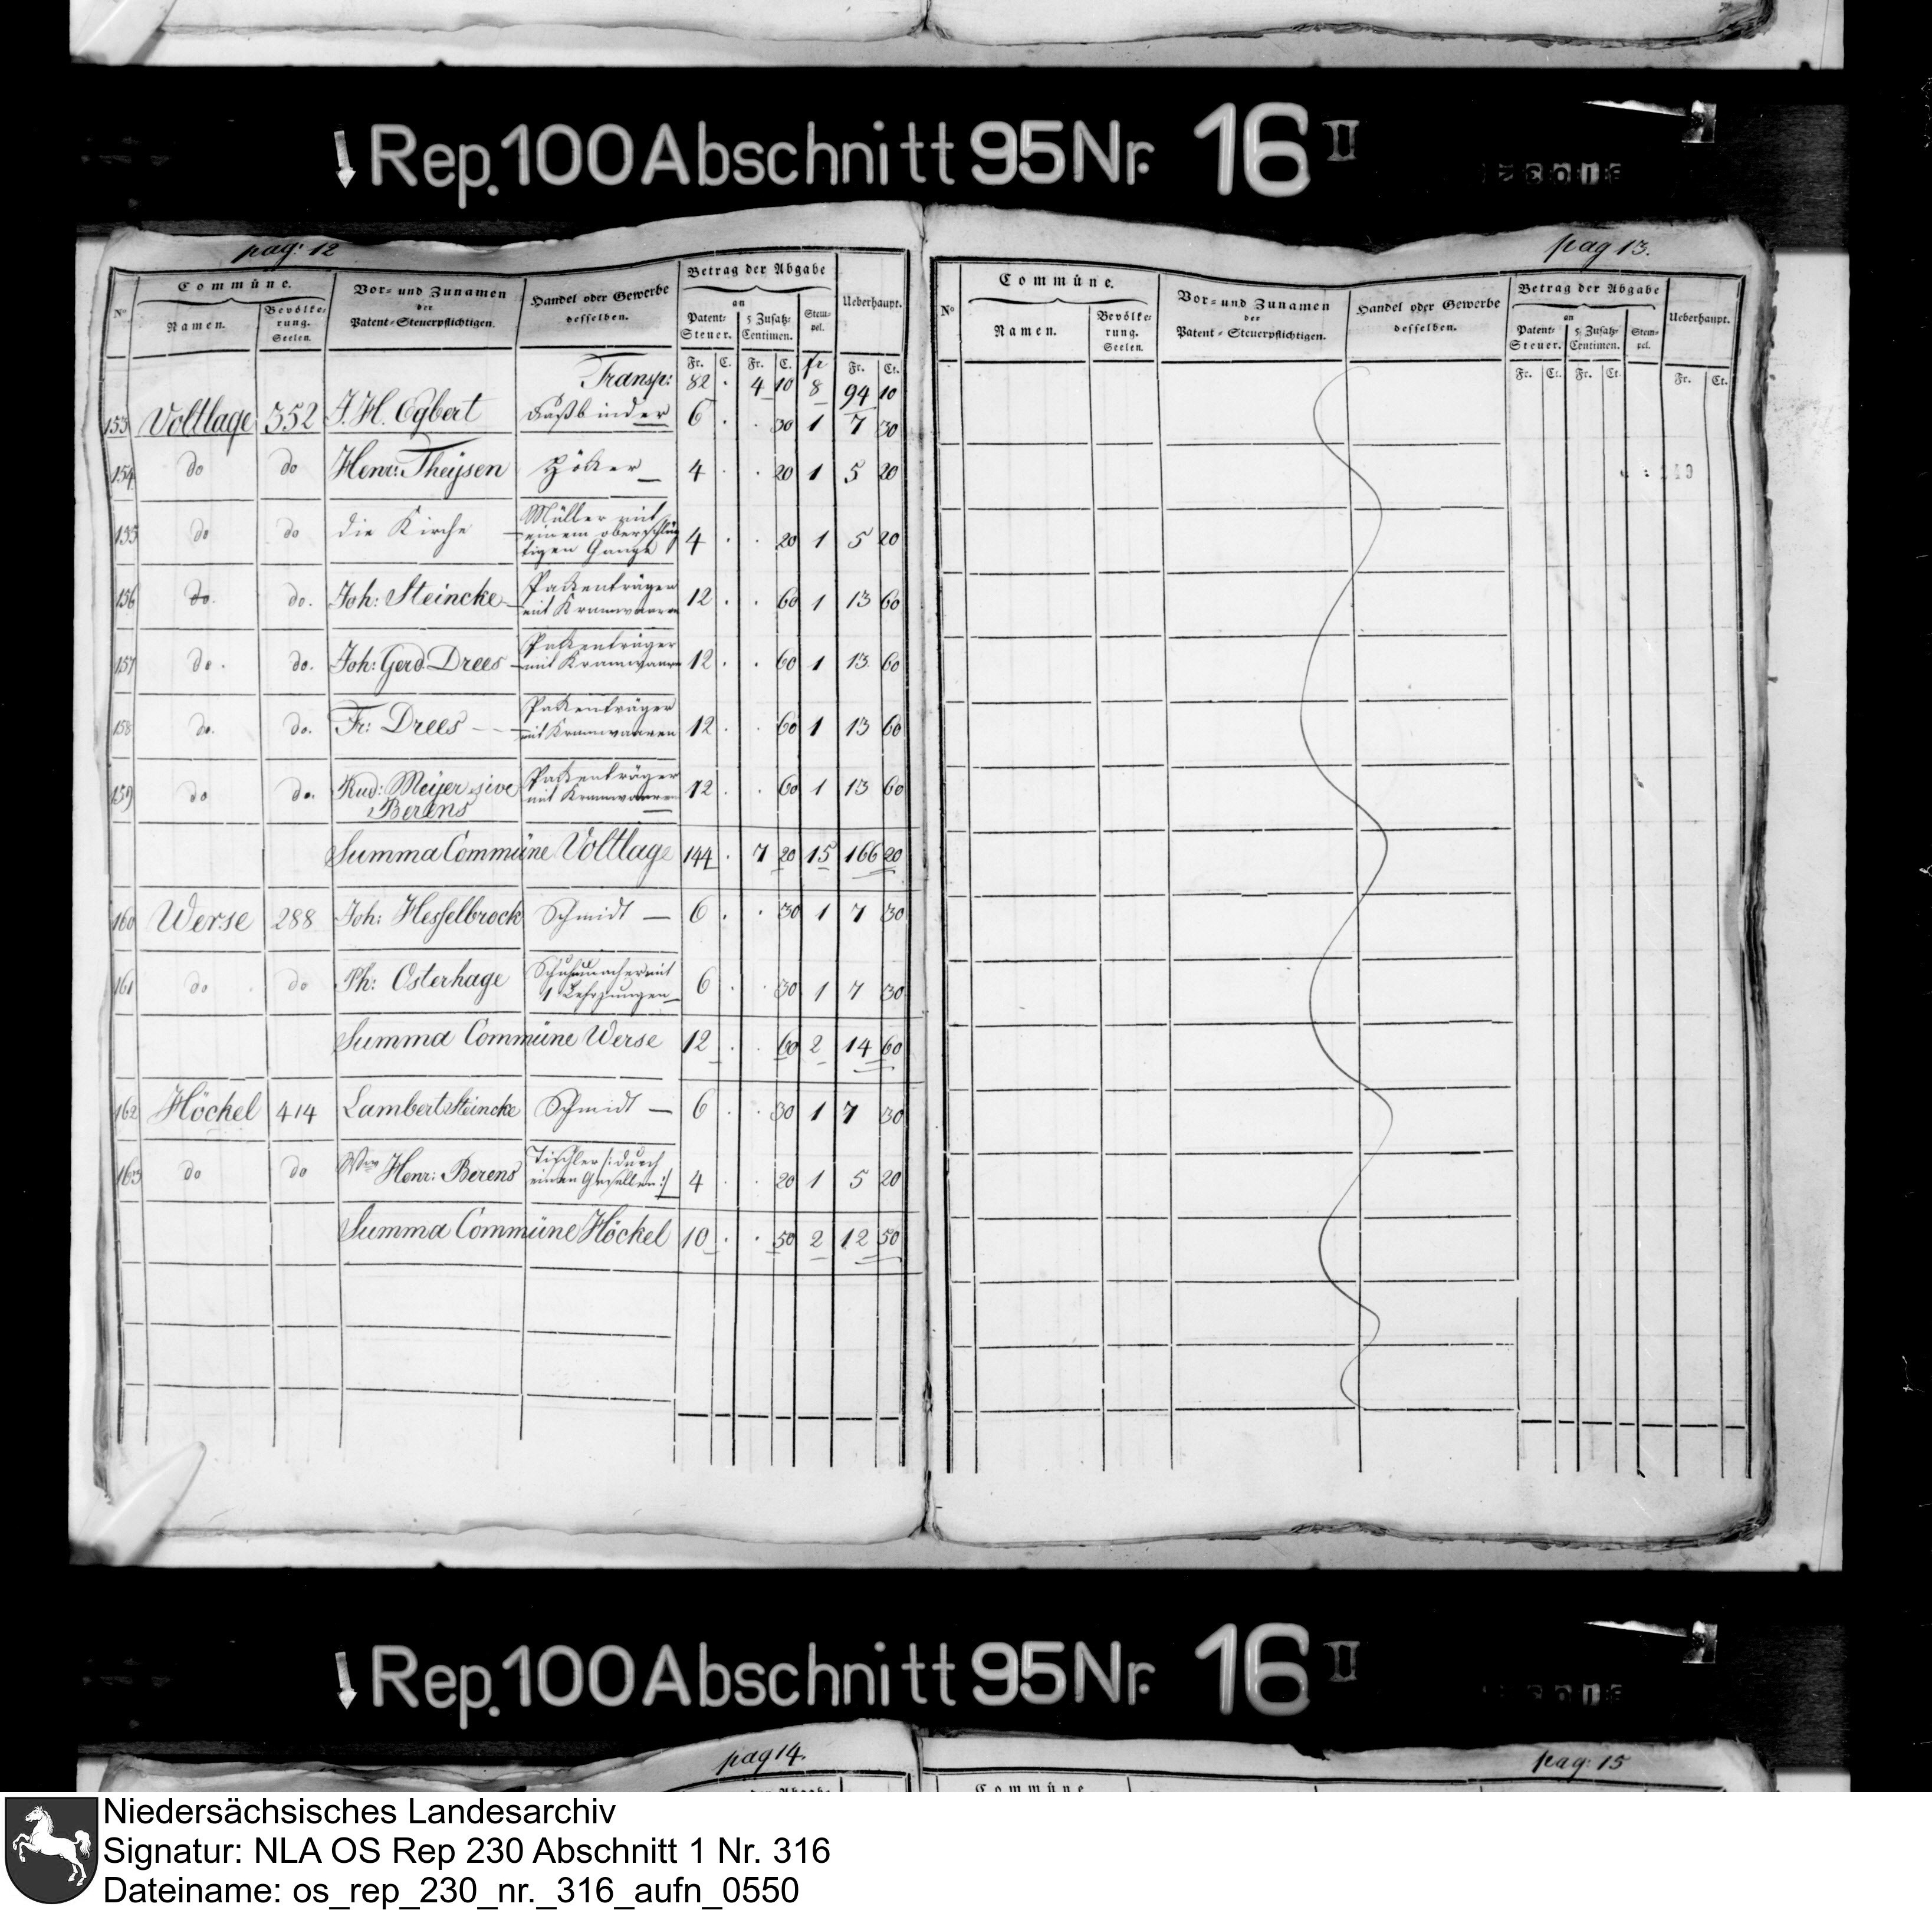 Rep. 100 Abschnitt 95 Nr. 16 II
pag: 12
No Commüne. Vor- und Zunamen der Patent-Steuerpflichtigen. Handel oder Gewerbe desselben. Betrag der Abgabe Ueberhaupt.
Namen. Bevölkerung. Seelen. an Patent-Steuer. 5 Zusatz-Centimen. Stempel.
Fr. C. Fr. C. fr Fr. Ct.
Transp: 82 . 4 10 8 94 10
153 Voltlage 352 J. H. Egbert Faßbinder 6 . . 30 1 7 30
154 do do Henr: Theijsen Höker 4 . . 20 1 5 20
155 do do die Kirche Müller mit
einem oberschläg
tigen Gange 4 . . 20 1 5 20
156 do. do. Joh: Steincke Packenträger
mit Kramwaaren 12 . . 60 1 13 60
157 do. do. Joh: Gerd Drees Packenträger
mit Kramwaaren 12 . . 60 1 13 60
158 do. do. Fr: Drees Packenträger
mit Kramwaaren 12 . . 60 1 13 60
159 do do. Rud: Meijer sive
Berens Packenträger
mit Kramwaaren 12 . . 60 1 13 60
Summa Commüne Voltlage 144 . 7 20 15 166 20
160 Werse 288 Joh: Hesselbrock Schmidt 6 . . 30 1 7 30
161 do do Ph: Osterhage Schuhmacher mit
1 Lehrjungen 6 . . 30 1 7 30
Summa Commüne Werse 12 . . 60 2 14 60
162 Höckel 414 Lambert Steincke Schmidt 6 . . 30 1 7 30
163 do do Wwe Henr: Berens Tischler /: durch
einen Gesellen :/ 4 . . 20 1 5 20
Summa Commüne Höckel 10 . . 50 2 12 50
pag 13.
No Commüne. Vor- und Zunamen der Patent-Steuerpflichtigen. Handel oder Gewerbe desselben. Betrag der Abgabe Ueberhaupt.
Namen. Bevölkerung. Seelen. an Patent-Steuer. 5 Zusatz-Centimen. Stempel.
Fr. Ct. Fr. Ct. Fr. Ct.
Rep. 100 Abschnitt 95 Nr. 16 II
pag 14.
pag: 15
Commüne
Niedersächsisches Landesarchiv
Signatur: NLA OS Rep 230 Abschnitt 1 Nr. 316
Dateiname: os_rep_230_nr._316_aufn_0550